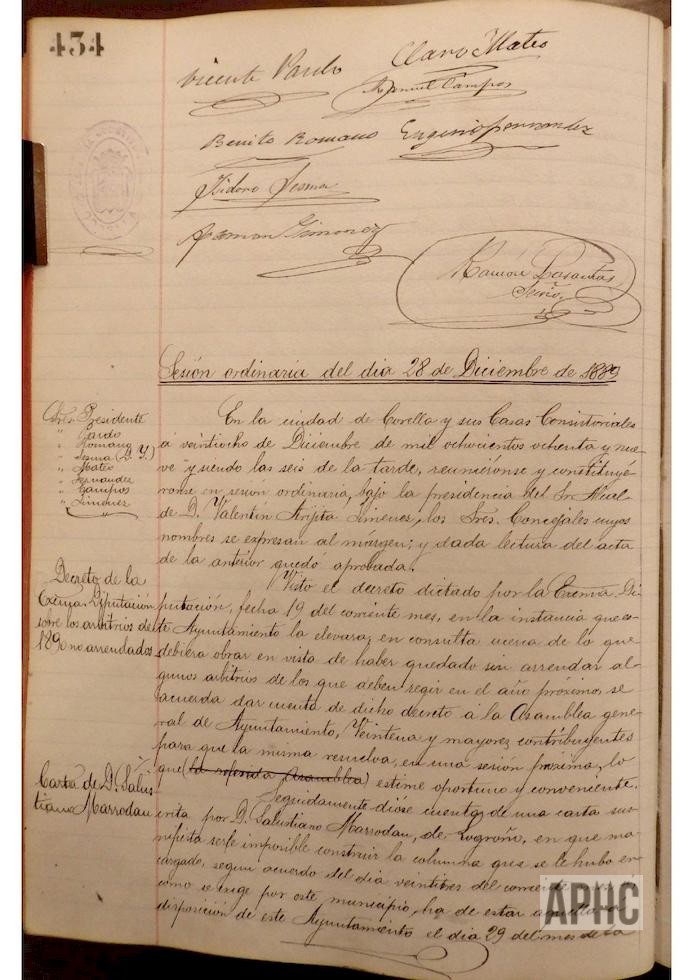 434
Vicente Pardo
Claro Mateo
Manuel Campos
Benito Romano
Eugenio Fernandez
Isidoro Sesma
Ramon Gimenez
Ramón
Srio
CORELLA
Sesión ordinaria del dia 28 de Diciembre de 1889
Sres. Presidente
" Pardo
" Romano
" Sesma (D. Y.)
" Mateo
" Fernandez
" Campos
" Jimenez
En la ciudad de Corella y sus Casas Consistoriales
á veintiocho de Diciembre de mil ochocientos ochenta y nue-
ve y siendo las seis de la tarde, reuniéronse y constituyé-
ronse en sesión ordinaria, bajo la presidencia del Sr. Alcal-
de D. Valentin Jimenez, los Sres. Concejales cuyos
nombres se expresan al márgen; y dada lectura del acta
de la anterior quedó aprobada.
Decreto de la
Excma. Diputación
sobre los arbitrios de
1890 no arrendados
Visto el decreto dictado por la Excma. Di-
putación, fecha 19 del corriente mes, en la instancia que es-
te Ayuntamiento la elevara, en consulta acerca de lo que
debiera obrar en vista de haber quedado sin arrendar al-
gunos arbitrios de los que deben regir en el año próximo, se
acuerda dar cuenta de dicho decreto á la Asamblea gene-
ral de Ayuntamiento, Veintena y mayores contribuyentes
para que la misma resuelva, en una sesión próxima, lo
que (la referida Asamblea) estime oportuno y conveniente.
Carta de D. Salus-
tiano Marrodan
Seguidamente dióse cuenta de una carta sus-
crita por D. Salustiano Marrodan, de Logroño, en que ma-
nifiesta serle imposible construir la columna que se le hubo en-
cargado, segun acuerdo del dia veintitres del corriente
como se exige por este municipio, ha de estar
disposición de este Ayuntamiento el dia 29 del mes de la
APHC